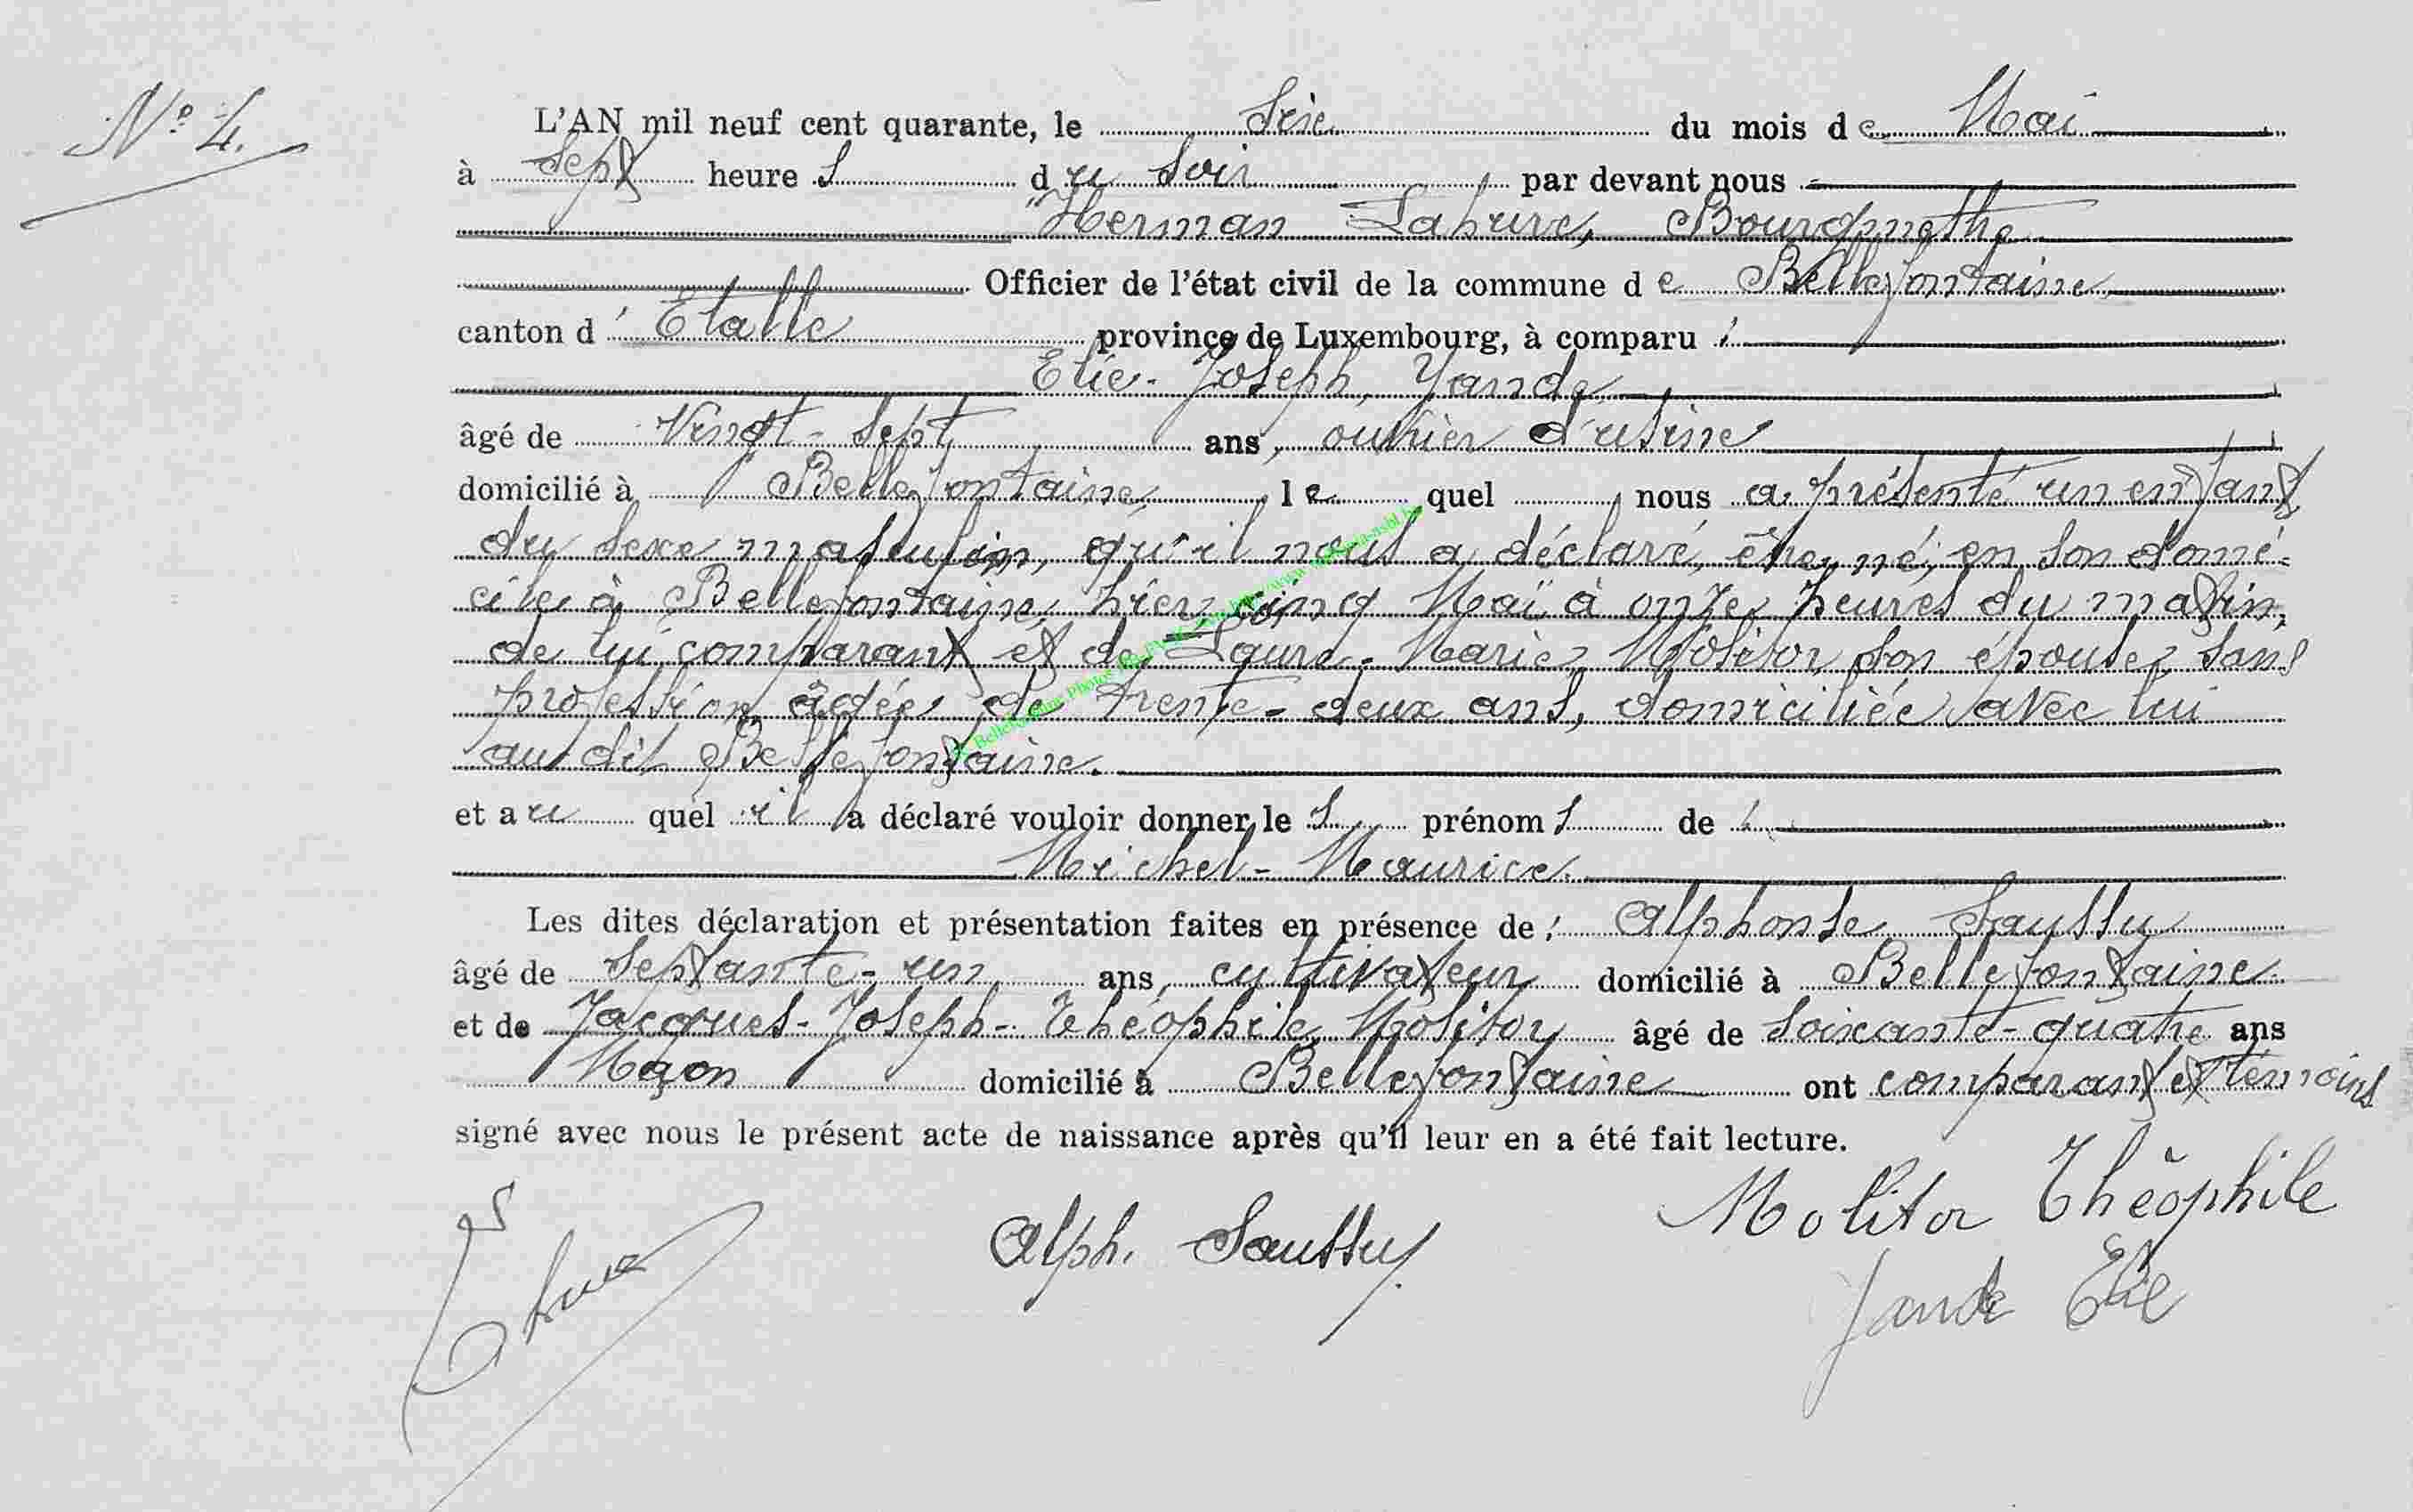 N° 4.
L'AN mil neuf cent quarante, le Six du mois de Mai
à Sept heures du Soir par devant nous
Herman Lahure, Bourgmestre
Officier de l'état civil de la commune de Bellefontaine
canton d'Etalle province de Luxembourg, à comparu :
Elie-Joseph Jande
âgé de Vingt-Sept ans, ouvrier d'usine
domicilié à Bellefontaine, lequel nous a présenté un enfant
du sexe masculin, qu'il nous a déclaré, être né, en son domi-
cile à Bellefontaine, hier cinq Mai à onze heures du matin,
de lui comparant et de Laure-Marie, Molitor, son épouse, sans
profession, âgée de trente-deux ans, domiciliée avec lui
au dit Bellefontaine.
et auquel il a déclaré vouloir donner les prénoms de :
Michel-Maurice.
Les dites déclaration et présentation faites en présence de : Alphonse Saussu
âgé de Septante-un ans, cultivateur domicilié à Bellefontaine
et de Jacques-Joseph-Théophile Molitor âgé de soixante-quatre ans
Maçon domicilié à Bellefontaine ont comparant et témoins
signé avec nous le présent acte de naissance après qu'il leur en a été fait lecture.
Molitor Théophile
Alph. Saussu
Jande Elie